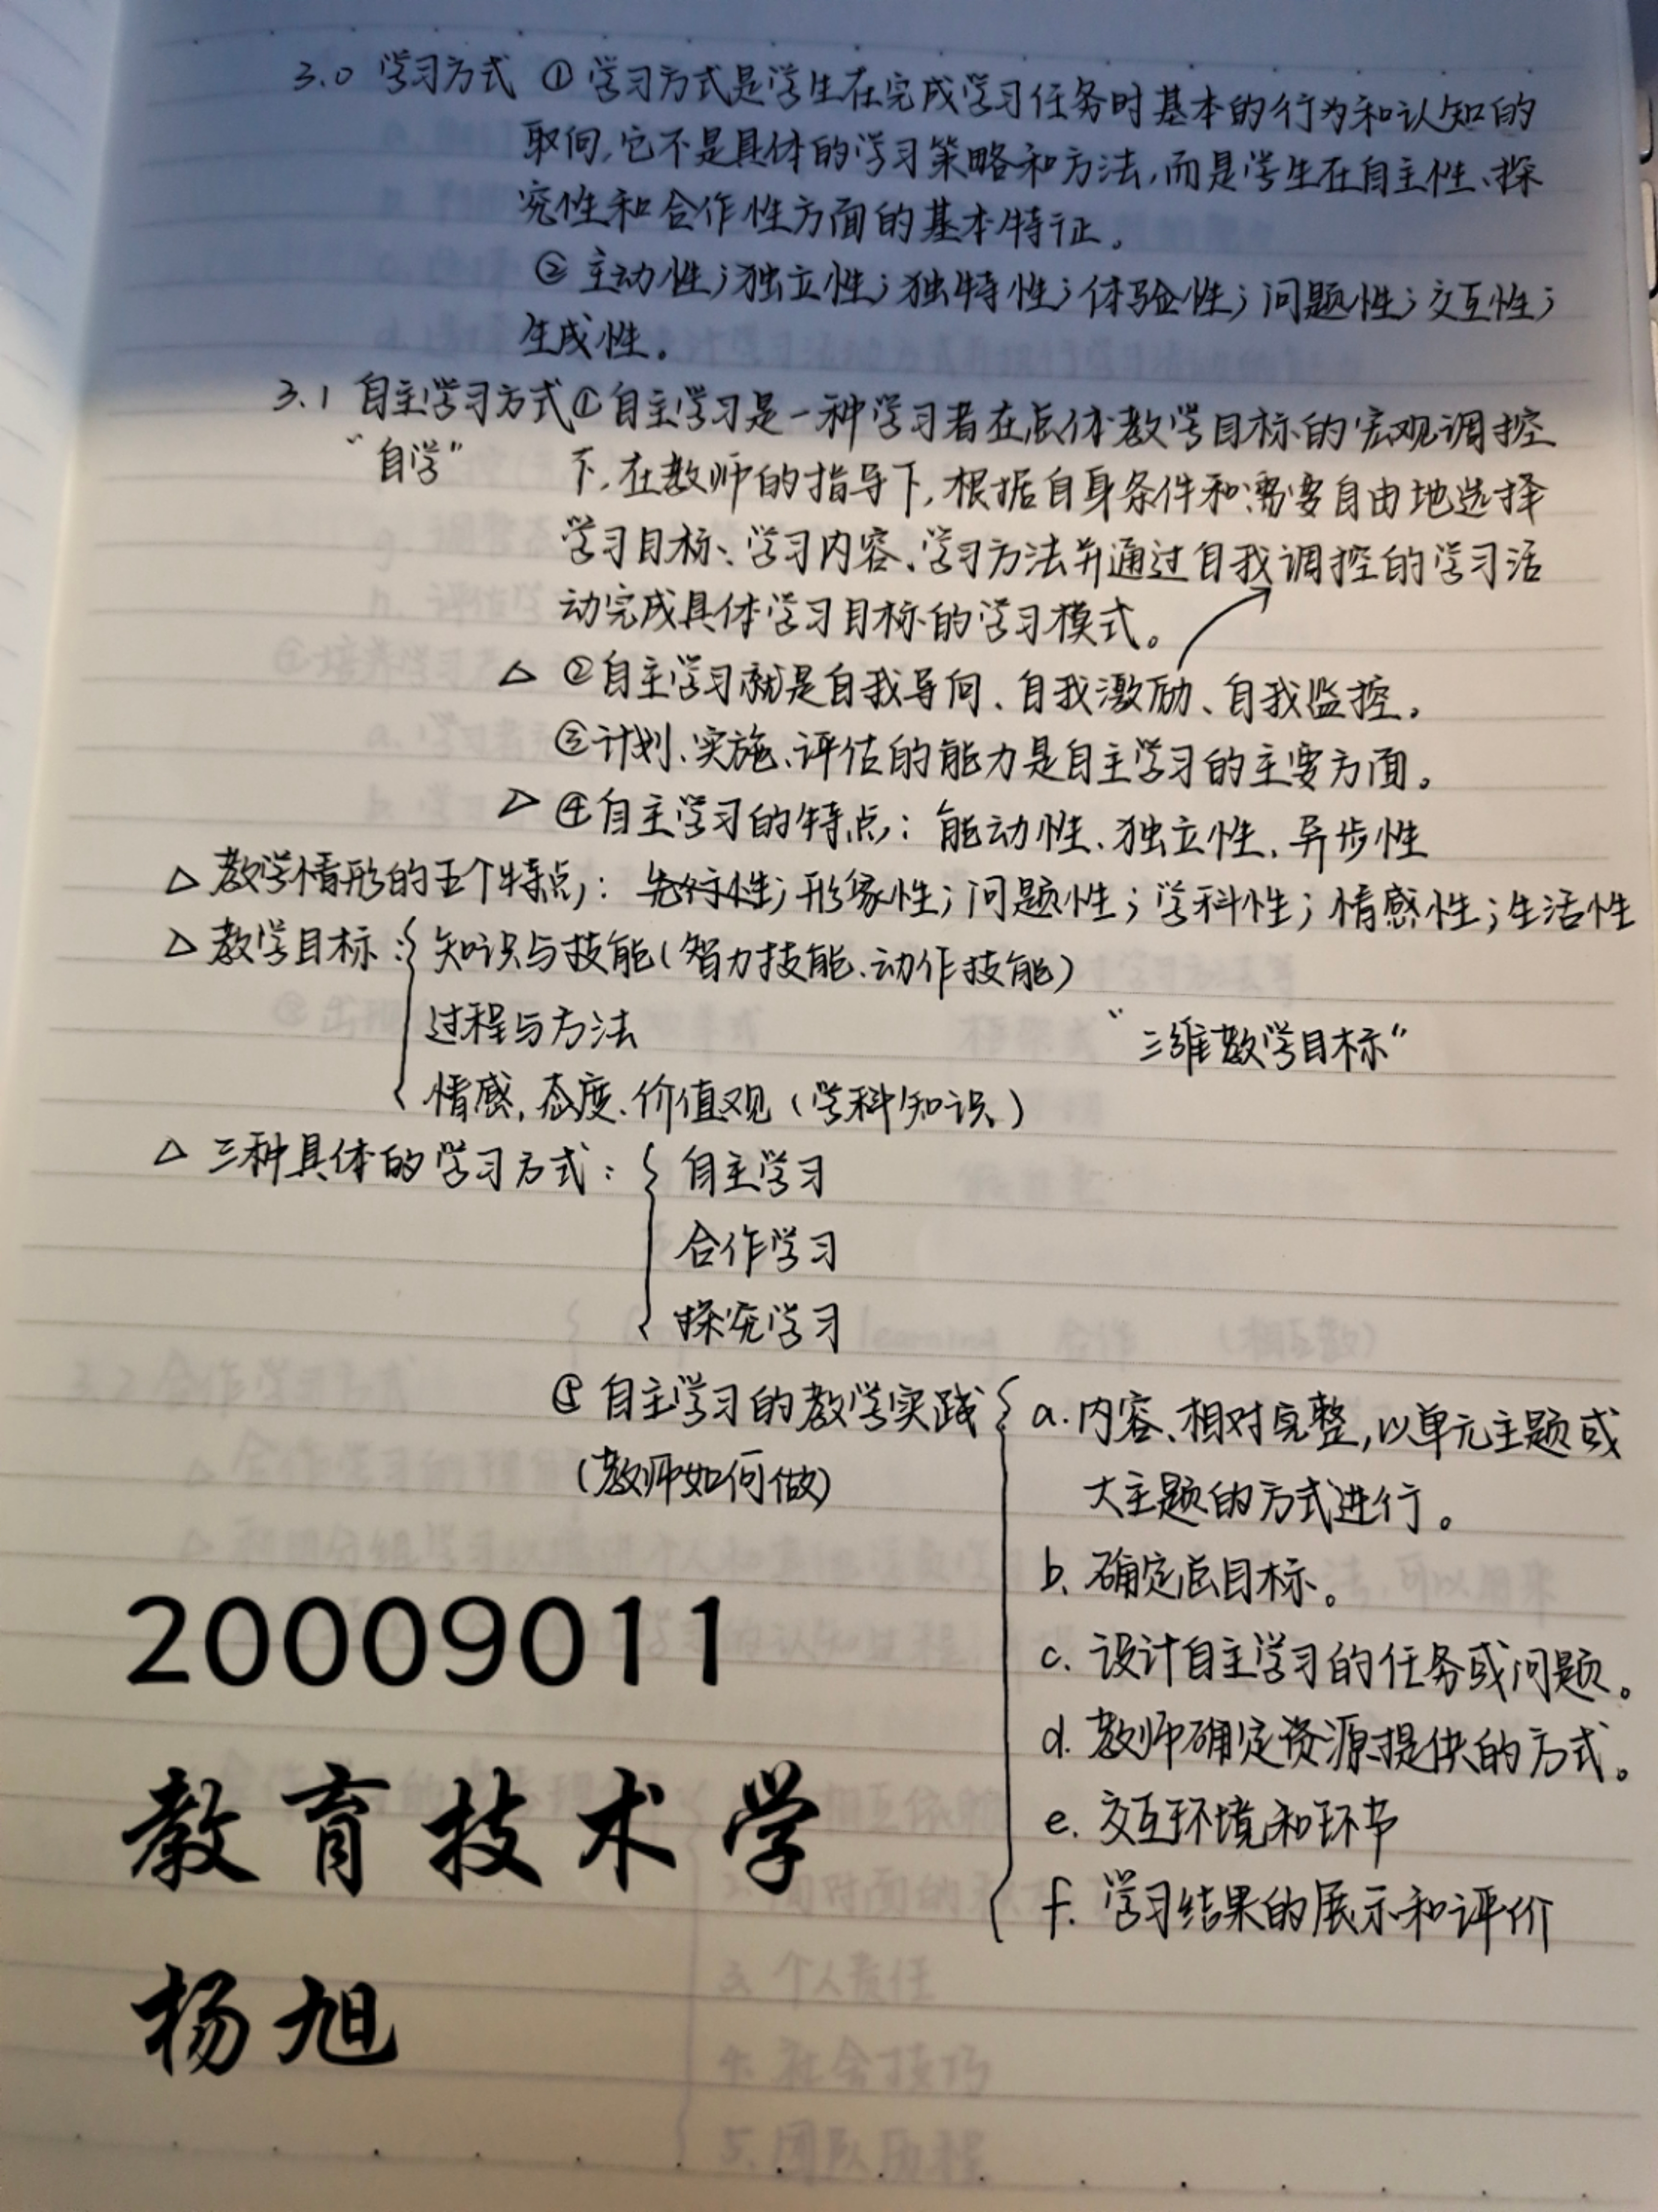 3.0 学习方式 ①学习方式是学生在完成学习任务时基本的行为和认知的
取向,它不是具体的学习策略和方法,而是学生在自主性、探
究性和合作性方面的基本特征。
②主动性;独立性;独特性;体验性;问题性;交互性;
生成性。
3.1 自主学习方式①自主学习是一种学习者在总体教学目标的宏观调控
“自学” 下,在教师的指导下,根据自身条件和需要自由地选择
学习目标、学习内容、学习方法并通过自我调控的学习活
动完成具体学习目标的学习模式。
△ ②自主学习就是自我导向、自我激励、自我监控。
③计划、实施、评估的能力是自主学习的主要方面。
△ ④自主学习的特点:能动性、独立性、异步性
△ 教学情形的五个特点:先行性;形象性;问题性;学科性;情感性;生活性
△ 教学目标:{ 知识与技能(智力技能、动作技能)
过程与方法 “三维教学目标”
情感,态度、价值观(学科知识)
△ 三种具体的学习方式:{ 自主学习
合作学习
探究学习
⑤ 自主学习的教学实践 { a. 内容、相对完整,以单元主题或
(教师如何做) 大主题的方式进行。
b. 确定总目标。
c. 设计自主学习的任务或问题。
d. 教师确定资源提供的方式。
e. 交互环境和环节
f. 学习结果的展示和评价
20009011
教育技术学
杨旭